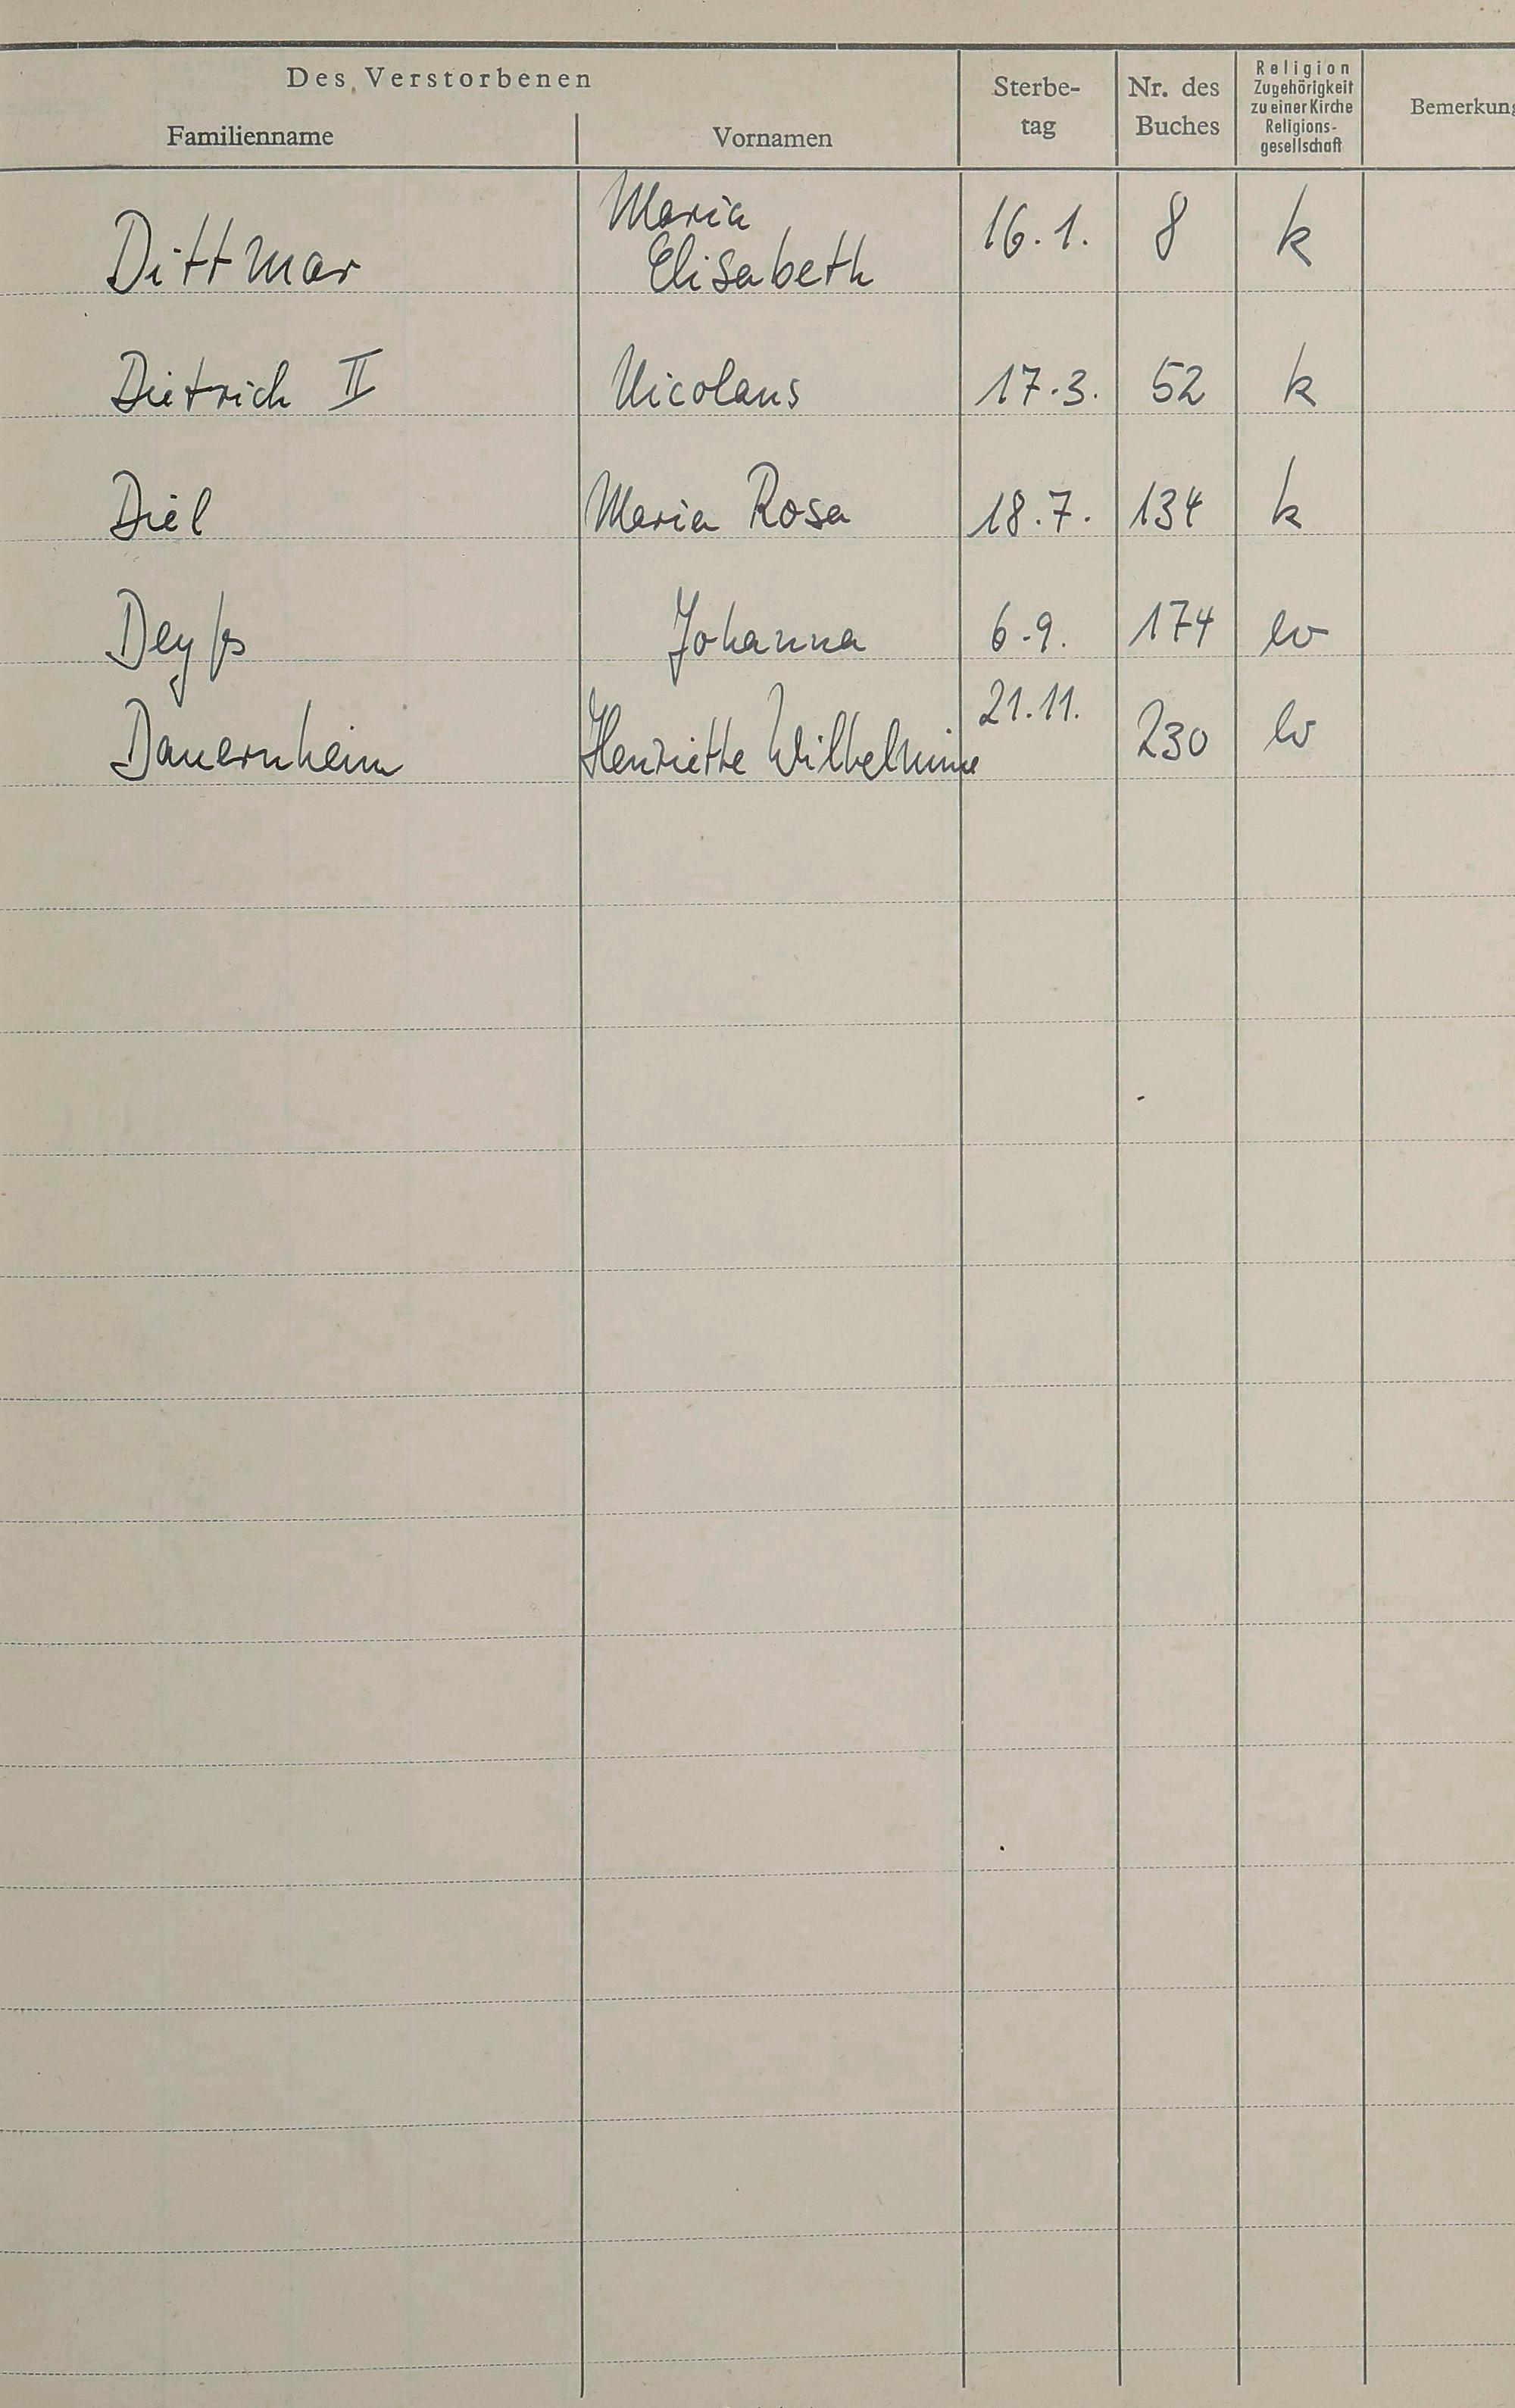 Des Verstorbenen
Familienname
Vornamen
Sterbe-
tag
Nr. des
Buches
Religion
Zugehörigkeit
zu einer Kirche
Religions-
gesellschaft
Bemerkung
Maria
Dittmar Elisabeth 16.1. 8 k
Dietrich II Nicolaus 17.3. 52 k
Diel Maria Rosa 18.7. 134 k
Deyß Johanna 6.9. 174 ev
Dauernheim Henriette Wilhelmine 21.11. 230 ev